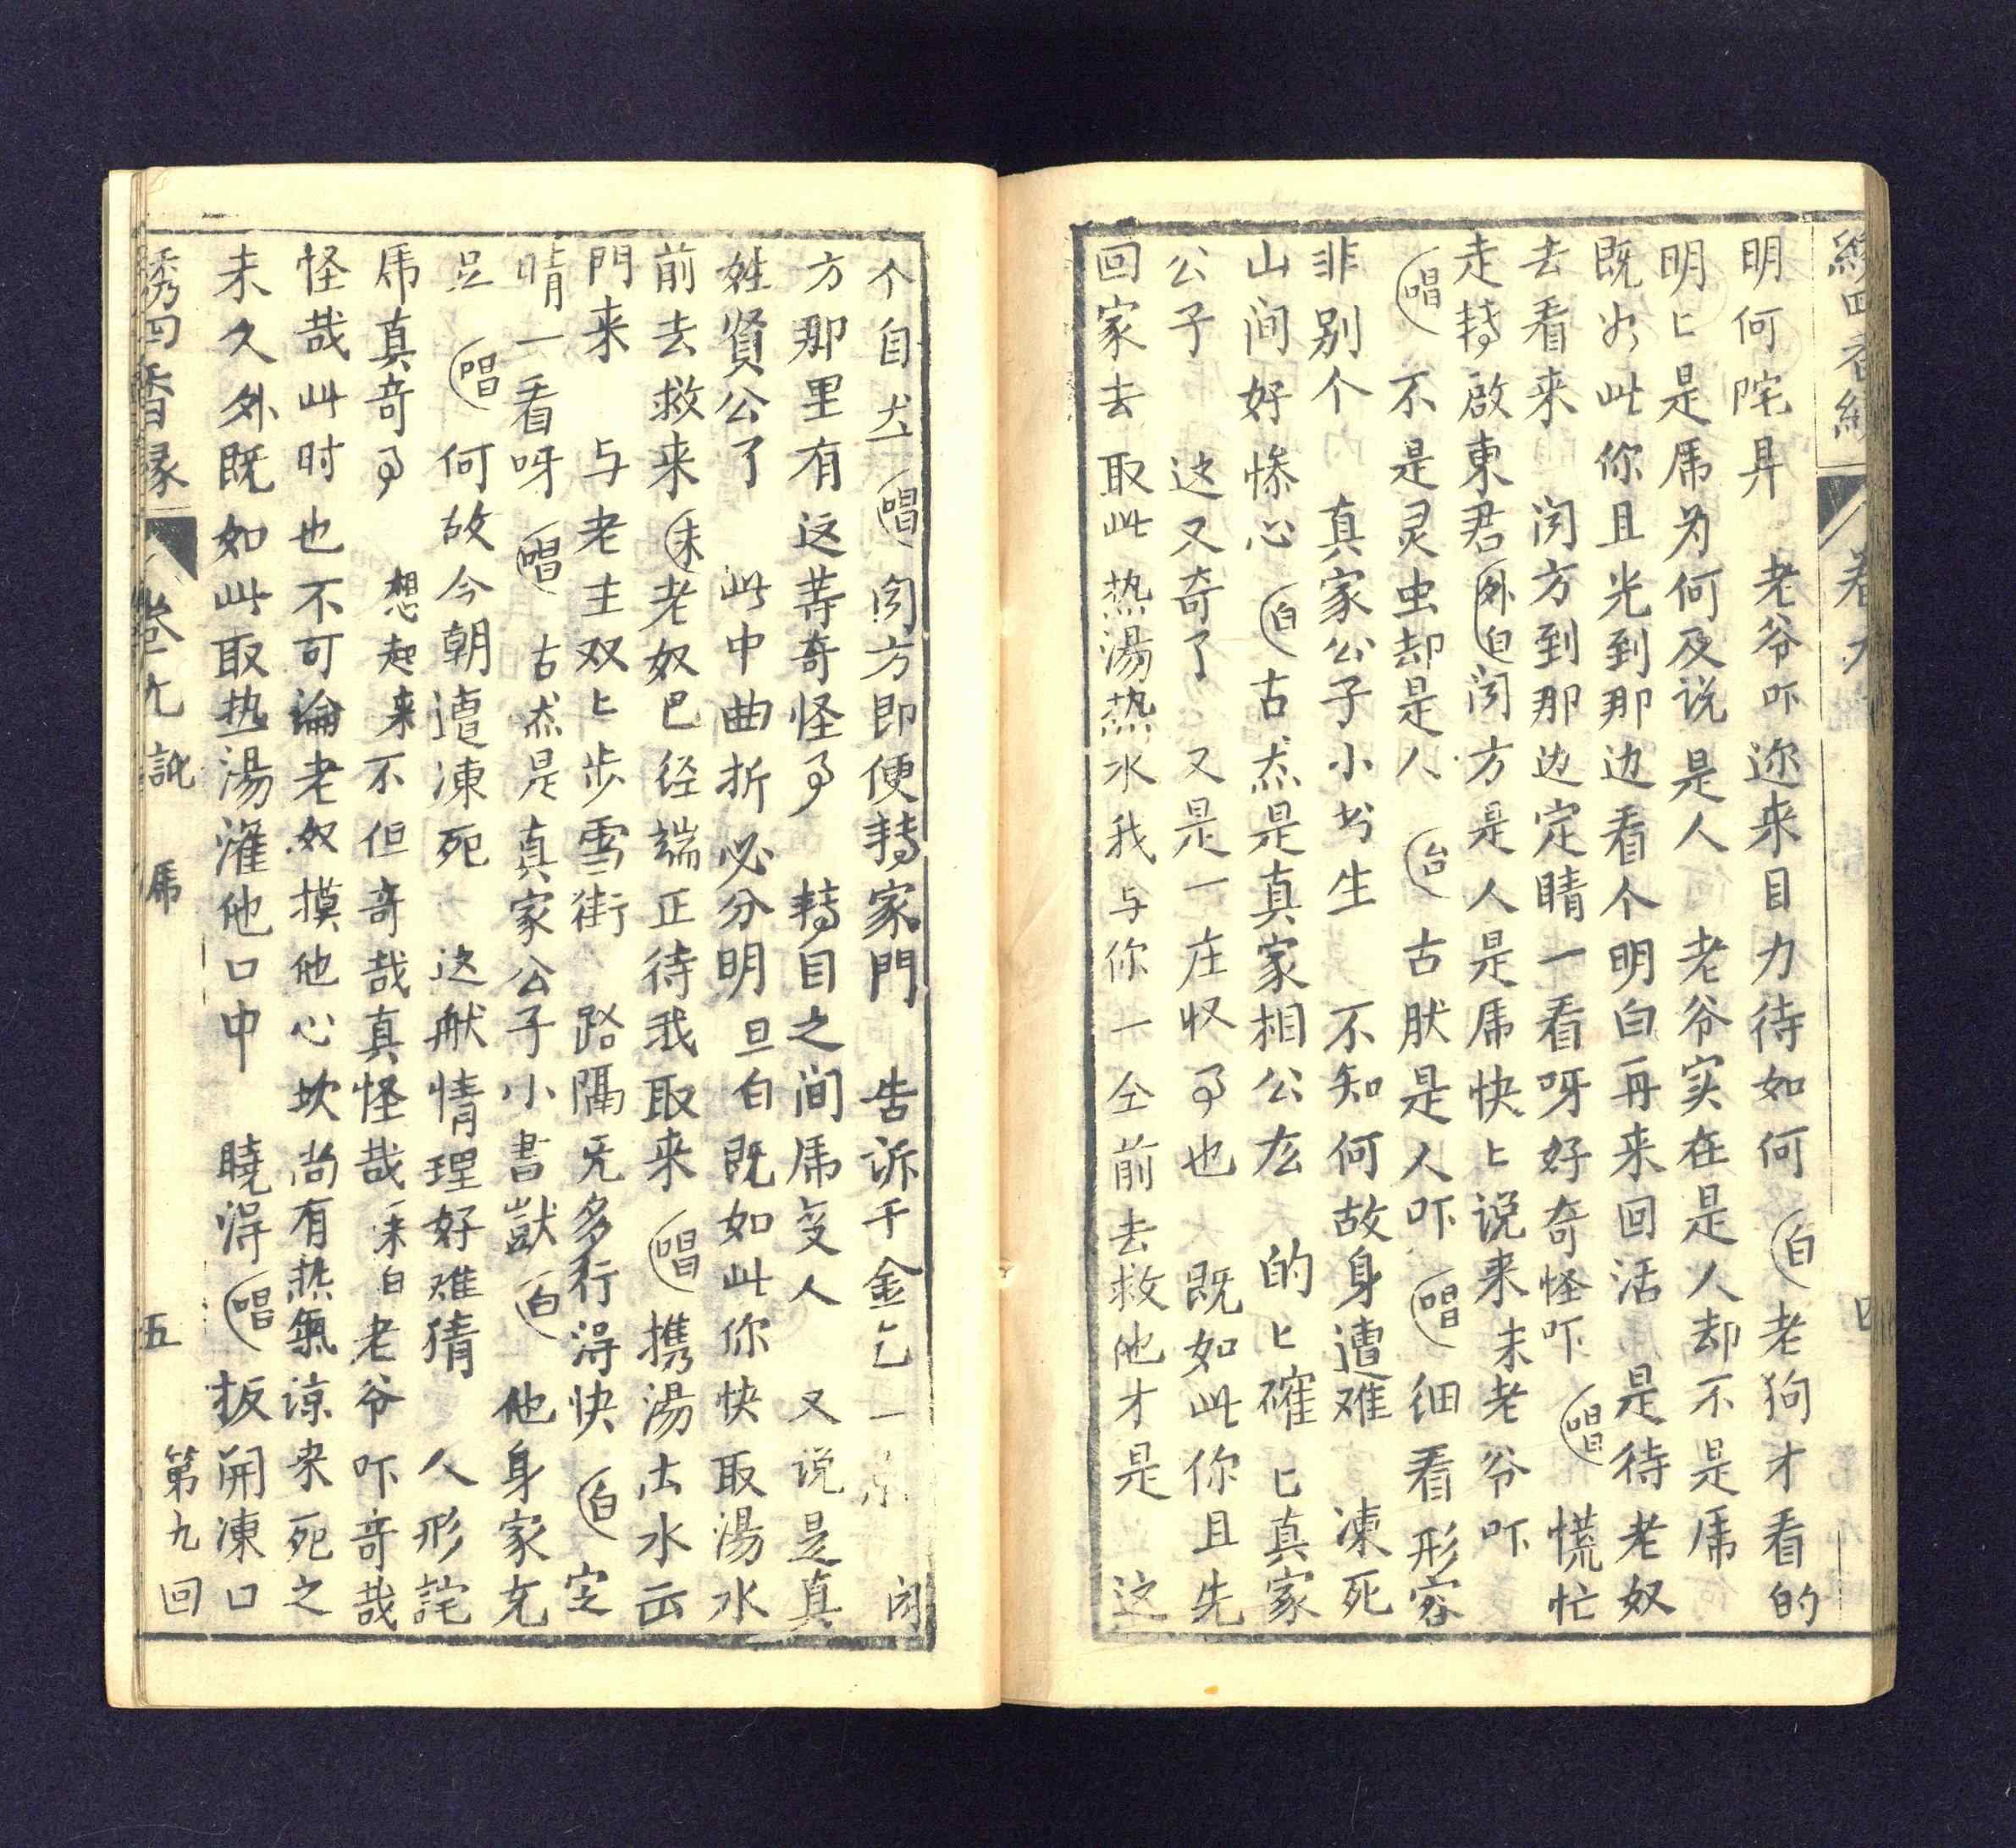 繍四香緣 卷九
明何陀昇 老爷吓迩来目力待如何 白 老狗才看的
明匕是乕为何及说是人 老爷实在是人却不是乕
既如此你且光到那边看个明白再来回活 是待老奴
去看来 闵方到那边定睛一看呀好奇怪吓 唱 慌忙
走轉啟東君 外白 闵方是人是乕快匕说来 末 老爷吓
唱 不是灵虫却是人 台 古肰是人吓 唱 细看形容
非别个 真家公子小书生 不知何故身遭难 凍死
山间好惨心 白 古杰是真家相公厷 的匕確匕真家
公子 这又奇了 又是一庄㕛㕝也 既如此你且先
回家去取此热湯热水我与你一仝前去救他才是 这
个自犬 唱 闵方即便轉家門 告诉千金乞一 闵
方那里有这䓁奇怪㕝 轉目之间乕变人 又说是真
姓賢公了 此中曲折必分明 旦白 既如此你快取湯水
前去救来 末 老奴巴径端正待我取来 唱 携湯出水㠭
門来 与老主双匕步雪街 路隔旡多行淂快 白 定
睛一看呀 唱 古杰是真家公子小書獃 白 他身家充
足 唱 何故今朝遭凍死 这般情理好难猜 人形詫
乕真竒㕝 想起来不但竒哉真怪哉 末白 老爷吓竒哉
怪哉此时也不可論老奴摸他心坎尚有热氣谅来死之
未久 外 既如此取热湯灌他口中 曉淂 唱 扳開凍口
綉四香緣 卷九 訛乕 五 第九回